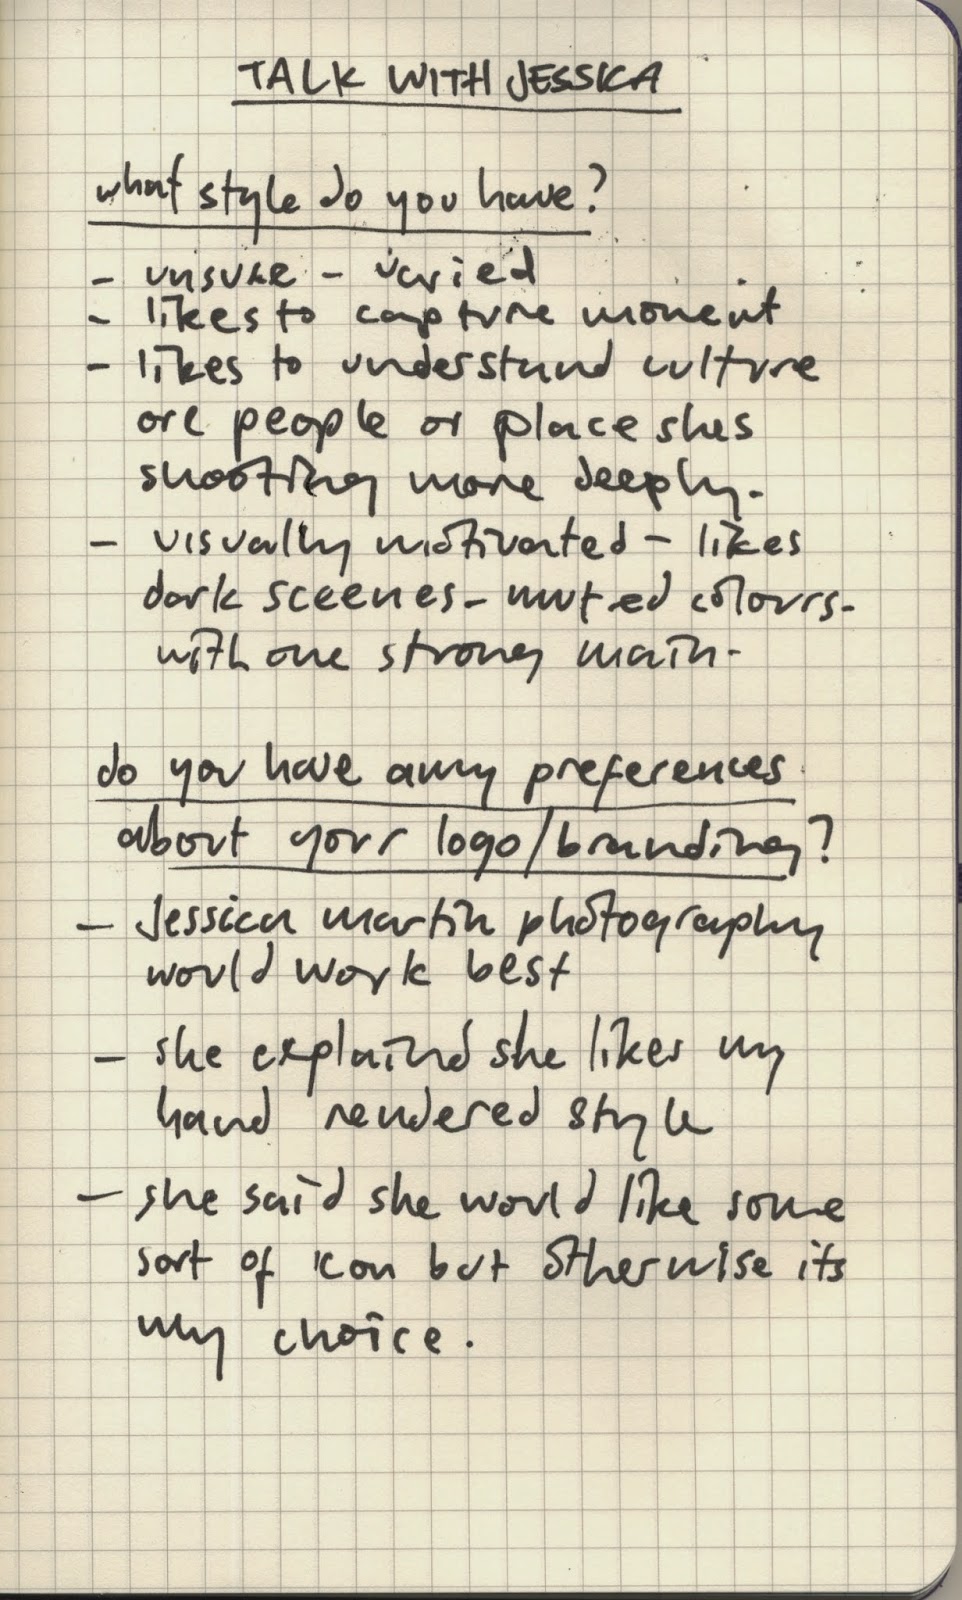 TALK WITH JESSICA
what style do you have?
- unsure - varied
- likes to capture moment
- likes to understand culture
ore people or place shes
shooting more deeply.
- visually motivated - likes
dark sceenes - muted colours.
with one strong main.
do you have any preferences
about your logo/branding?
- Jessica martin photography
would work best
- she explaind she likes my
hand rendered style
- she said she would like some
sort of icon but otherwise its
my choice.